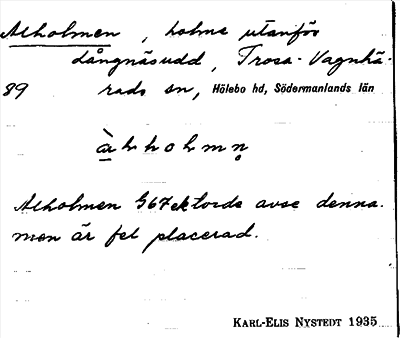 Alholmen, holme utanför
Långnäsudd, Trosa-Vagnhä-
89 rads sn, Hölebo hd, Södermanlands län
àhholmn̥
Alholmen G67 ek torde avse denna.
men är fel placerad.
KARL-ELIS NYSTEDT 1935